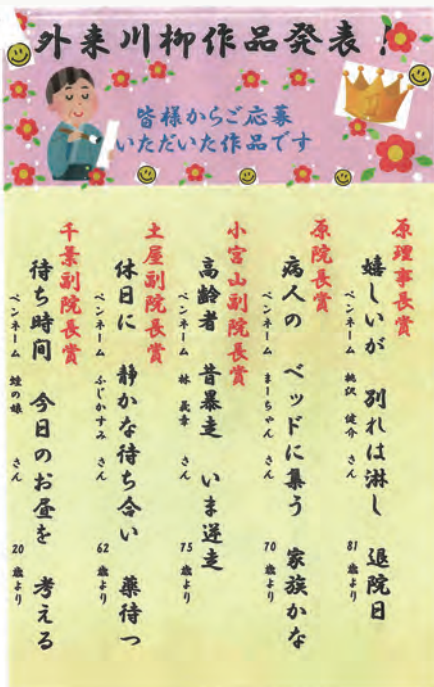 外来川柳作品発表!
皆様からご応募
いただいた作品です
原理事長賞
嬉しいが 別れは淋し 退院日
ペンネーム 桃沢 健介 さん 81歳より
原院長賞
病人の ベッドに集う 家族かな
ペンネーム まーちゃん さん 70歳より
小宮山副院長賞
高齢者 昔暴走 いま逆走
ペンネーム 林 義幸 さん 75歳より
土屋副院長賞
休日に 静かな待ち合い 薬待つ
ペンネーム ふじかすみ さん 62歳より
千葉副院長賞
待ち時間 今日のお昼を 考える
ペンネーム 蛙の娘 さん 20歳より